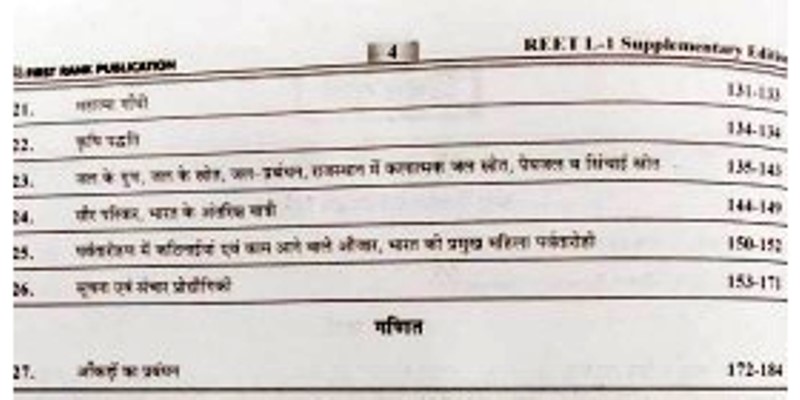 FIRST RANK PUBLICATION 4 REET L-1 Supplementary Editio
21. महात्मा गाँधी 131-133
22. कृषि पद्धति 134-134
23. जल के गुण, जल के स्रोत, जल-प्रबंधन, राजस्थान में कलात्मक जल स्रोत, पेयजल व सिंचाई स्रोत 135-143
24. सौर परिवार, भारत के अंतरिक्ष यात्री 144-149
25. पर्वतारोहण में कठिनाईयां एवं काम आने वाले औजार, भारत की प्रमुख महिला पर्वतारोही 150-152
26. सूचना एवं संचार प्रौद्योगिकी 153-171
गणित
27. आँकड़ों का प्रबंधन 172-184